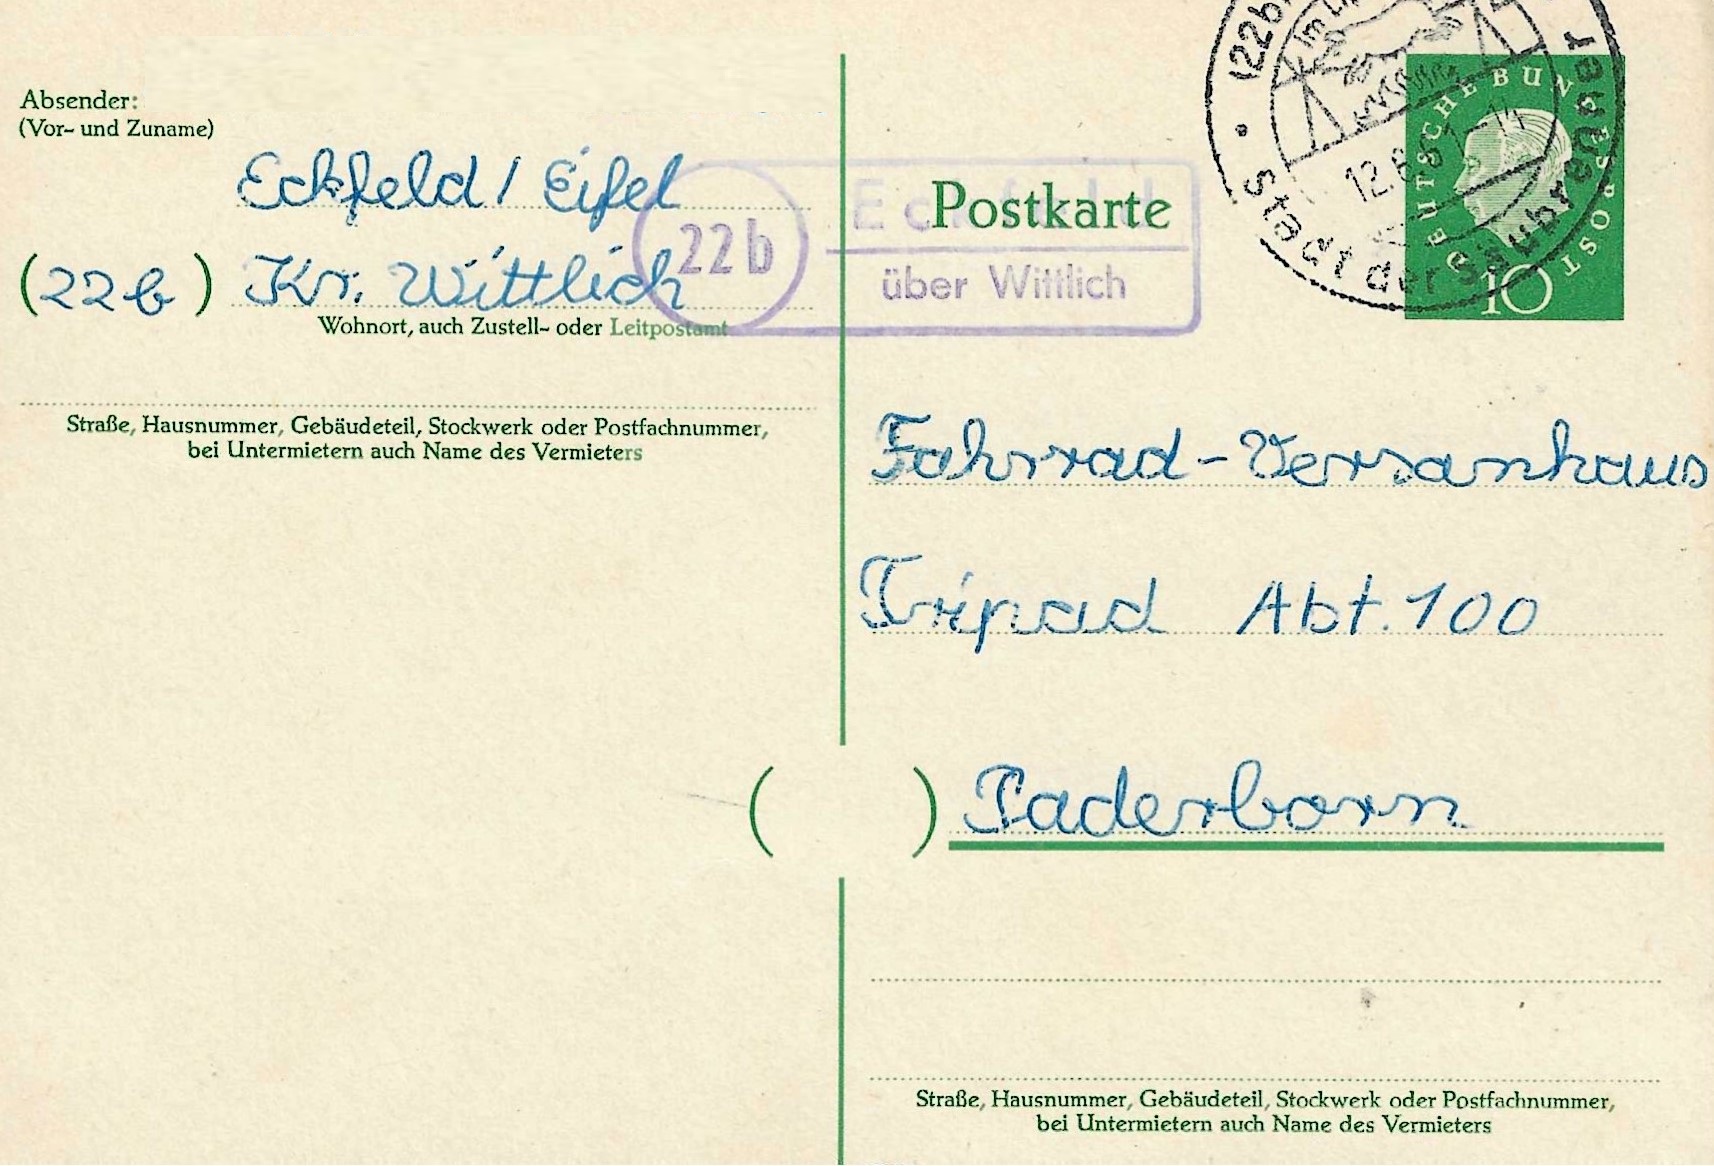 Absender:
(Vor- und Zuname)
Eckfeld / Eifel
(22b) Kr. Wittlich
Wohnort, auch Zustell- oder Leitpostamt
Straße, Hausnummer, Gebäudeteil, Stockwerk oder Postfachnummer,
bei Untermietern auch Name des Vermieters
22b
Eckfeld
über Wittlich
Postkarte
(22b)
Im
12.6.61-14
Stadt der Säubr
DEUTSCHE BUNDESPOST
10
Fahrrad-Versanhaus
Tripad Abt. 100
( ) Paderborn
Straße, Hausnummer, Gebäudeteil, Stockwerk oder Postfachnummer,
bei Untermietern auch Name des Vermieters